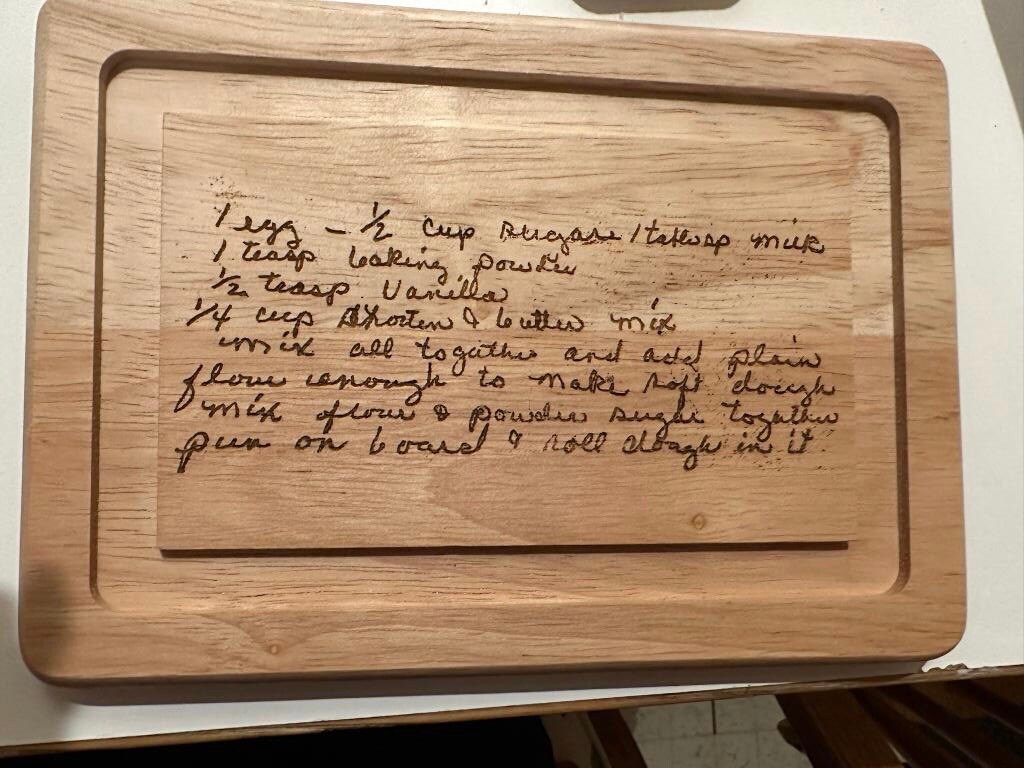 1 egg - ½ cup sugar 1 tablesp milk
1 teasp baking powder
½ teasp Vanilla
¼ cup shorten & butter mix
mix all togather and add plain
flour enough to make soft dough
mix flour & powder sugar together
put on board & roll dough in it